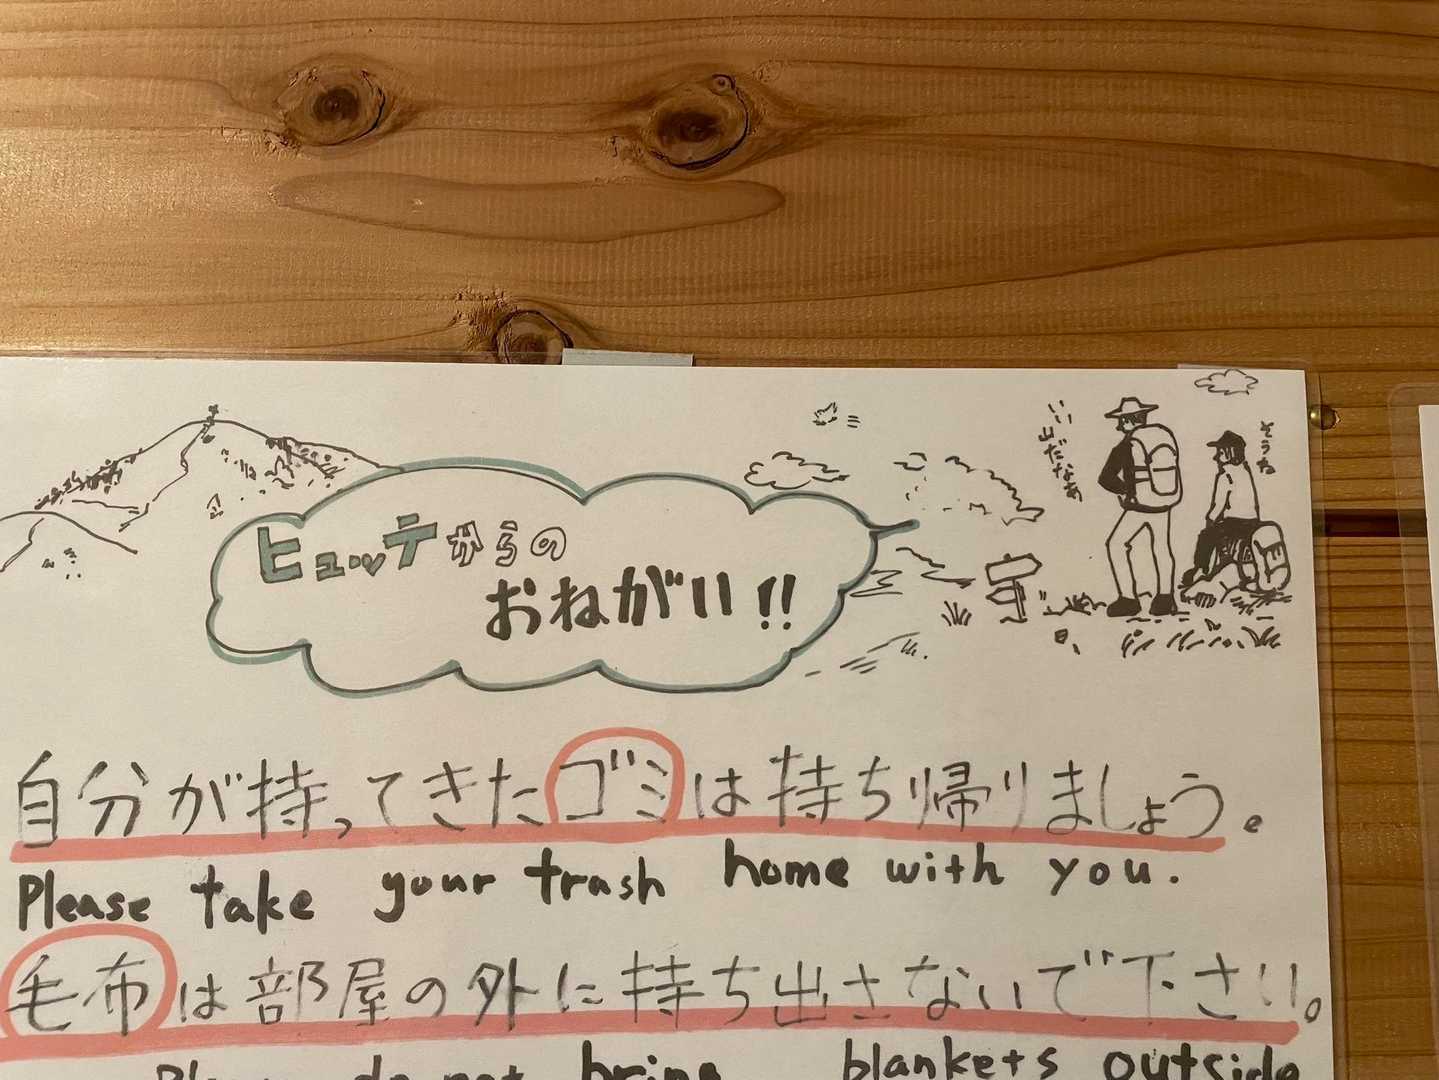 いい
山だなあ
そうね
ヒュッテからの
おねがい!!
自分が持ってきたゴミは持ち帰りましょう。
Please take your trash home with you.
毛布は部屋の外に持ち出さないで下さい。
Please do not bring blankets outside